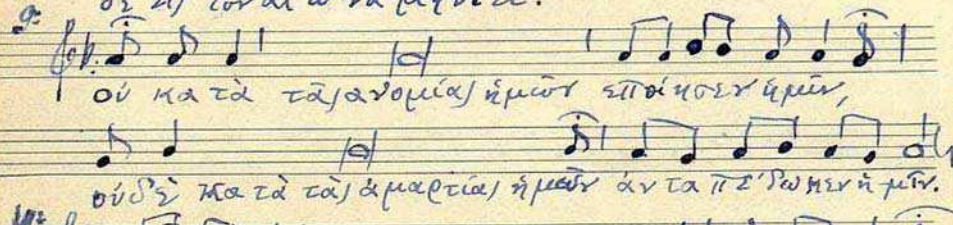 9.
οὐ κατὰ τὰς ἀνομίας ἡμῶν ἐποίησεν ἡμῖν,
οὐδὲ κατὰ τὰς ἁμαρτίας ἡμῶν ἀνταπέδωκεν ἡμῖν.
10.